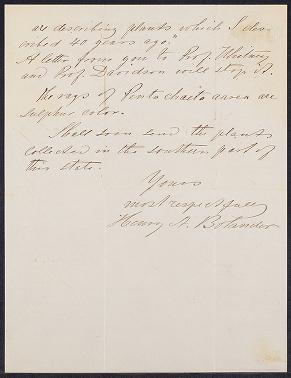 are describing plants which I des-
cribed 40 years ago."
A letter from you to Prof. Whitney
and Prof. Davidson will stop it.
The rays of Pentachaeta aurea are
sulphur color.
Shall soon send the plants
collected in the southern part of
this state.
Yours
most respectfully
Henry N. Bolander